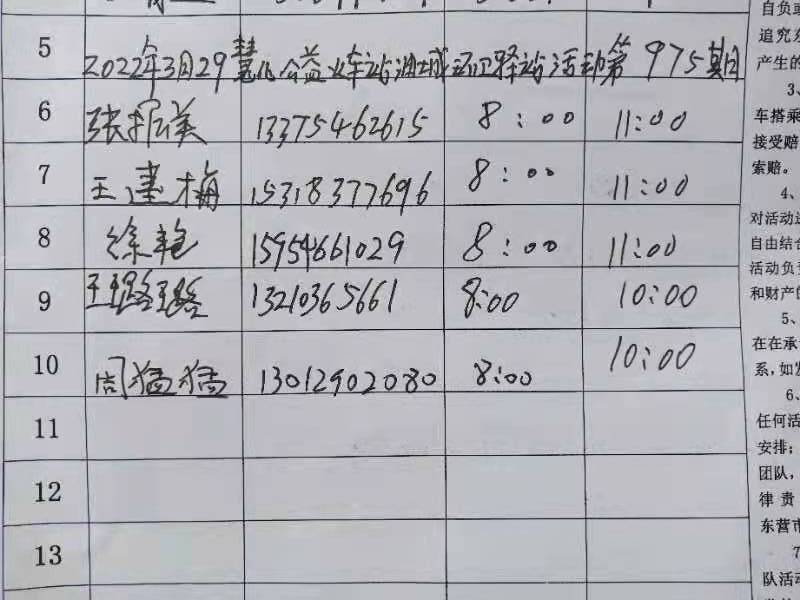 5
2022年3月29慧化公益火车站油城环卫驿站活动第975期
6 张振美 13375462615 8:00 11:00
7 王建梅 15318377696 8:00 11:00
8 徐艳 15954661029 8:00 11:00
9 王璐璐 13210365661 8:00 10:00
10 周猛猛 13012902080 8:00 10:00
11
12
13
自负或
追究
产生的
3、
车搭乘
接受赔
索赔。
4、
对活动
自由结合
活动负
和财产的
5、
在在承
系,如
6、
任何活
安排;
团队,
律 责
东营市
7
队活动